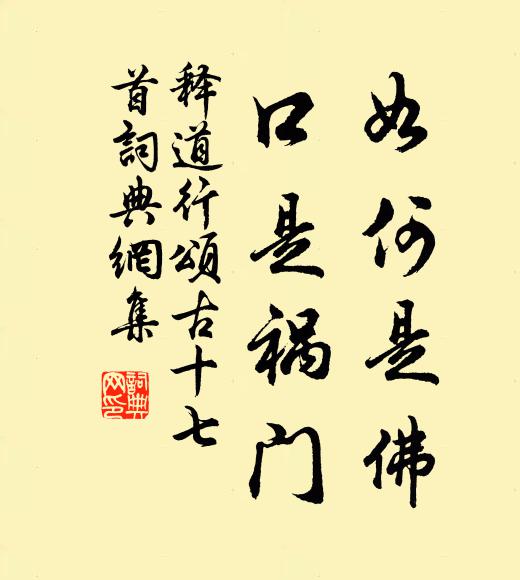 如何是佛
口是祸门
释道行颂古十七
首詞典網集
詞典
网印